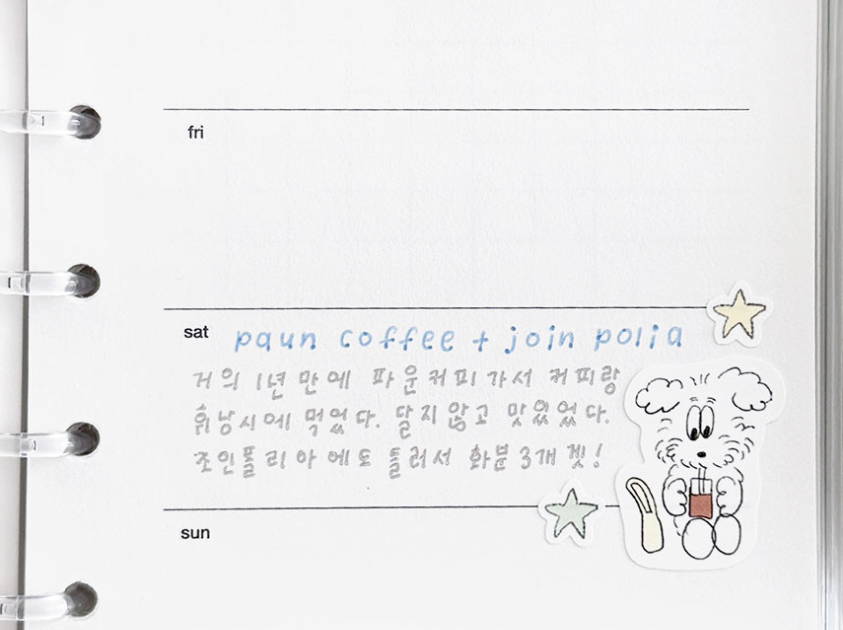 fri
sat
paun coffee + join polia
거의 1년 만에 파운커피 가서 커피랑
휘낭시에 먹었다. 달지 않고 맛있었다.
조인폴리아에도 들러서 화분 3개 겟!
sun